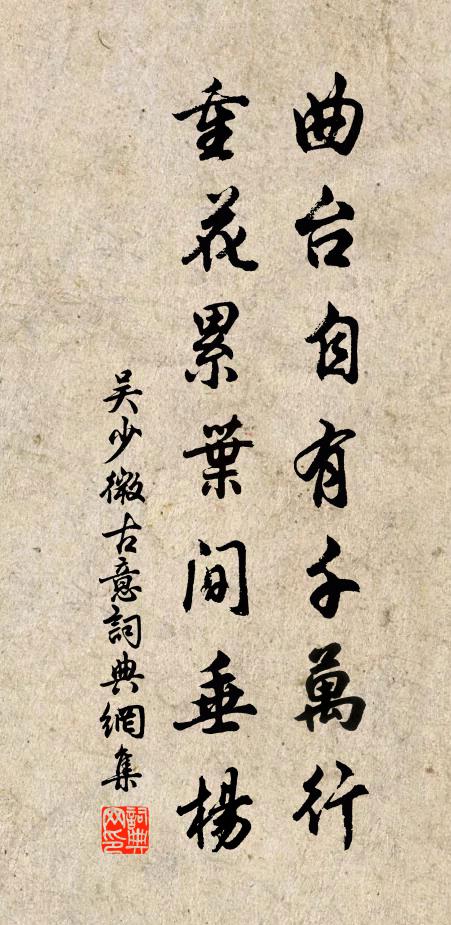 曲台自有千萬行
重花累葉間垂楊
吴少微古意詞典網集
詞典网印